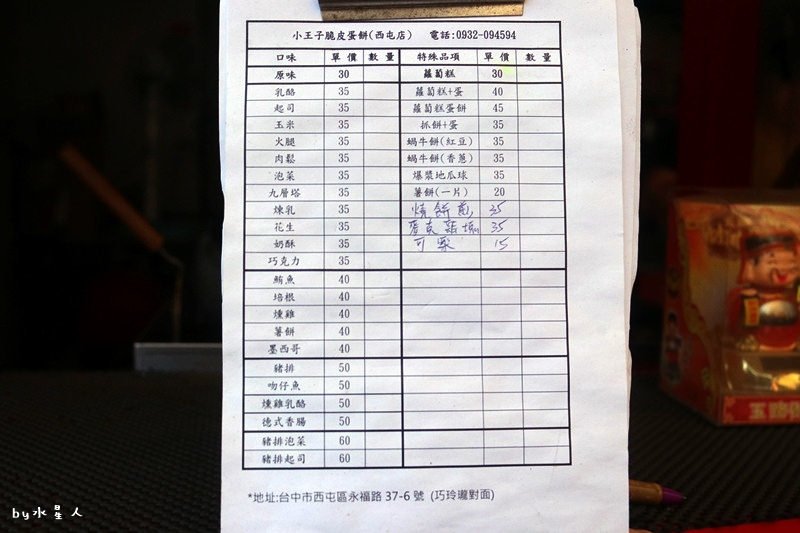 小王子脆皮蛋餅(西屯店) 電話:0932-094594
口味 單價 數量 特殊品項 單價 數量
原味 30 蘿蔔糕 30
乳酪 35 蘿蔔糕+蛋 40
起司 35 蘿蔔糕蛋餅 45
玉米 35 抓餅+蛋 35
火腿 35 蝸牛餅(紅豆) 35
肉鬆 35 蝸牛餅(香蔥) 35
泡菜 35 爆漿地瓜球 35
九層塔 35 薯餅(一片) 20
煉乳 35 35
花生 35 麥克雞塊 35
奶酥 35 可樂 15
巧克力 35
鮪魚 40
培根 40
燻雞 40
薯餅 40
墨西哥 40
豬排 50
吻仔魚 50
燻雞乳酪 50
德式香腸 50
豬排泡菜 60
豬排起司 60
*地址:台中市西屯區永福路 37-6 號 (巧玲瓏對面)
by水星人